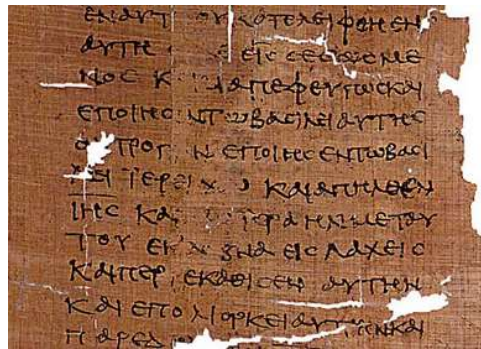 ΕΝ ΑΥΤ ΟΥ ΚΑΤΕΛΕΙΦΘΗ ΕΝ
ΑΥΤΗ ΕΙΣ ΣΕΣΩΣΜΕ
ΝΟΣ Κ ΔΙΑΠΕΦΕΥΓΩΣ ΚΑΙ
ΕΠΟΙΗΣΕΝ ΤΩ ΒΑΣΙΛΕΙ ΑΥΤΗΣ
Ο ΤΡΟΠ Ν ΕΠΟΙΗΣΕΝ ΤΩ ΒΑΣΙ
ΛΕΙ ΙΕΡΕΙΧΩ ΚΑΙ ΑΠΗΛΘΕΝ
ΙΗΣ ΚΑΙ ΙΣΡΑΗΛ ΜΕΤ ΑΥ
ΤΟΥ ΕΚ ΛΕΒΝΑ ΕΙΣ ΛΑΧΕΙΣ
ΚΑΙ ΠΕΡΙΕΚΑΘΙΣΕΝ ΑΥΤΗΝ
ΚΑΙ ΕΠΟΛΙΟΡΚΕΙ ΑΥΤΗΝ ΚΑΙ
ΠΑΡΕΔ